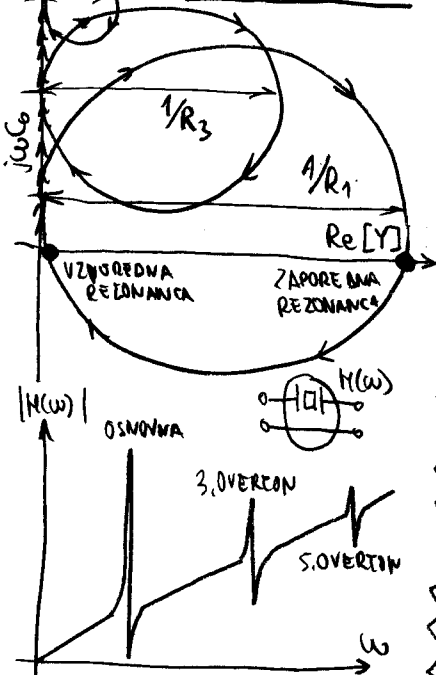 1/R₃
jωC₀
1/R₁
Re[Y]
VZPOREDNA
REZONANCA
ZAPOREDNA
REZONANCA
H(ω)
|H(ω)|
OSNOVNA
3.OVERTON
5.OVERTON
ω